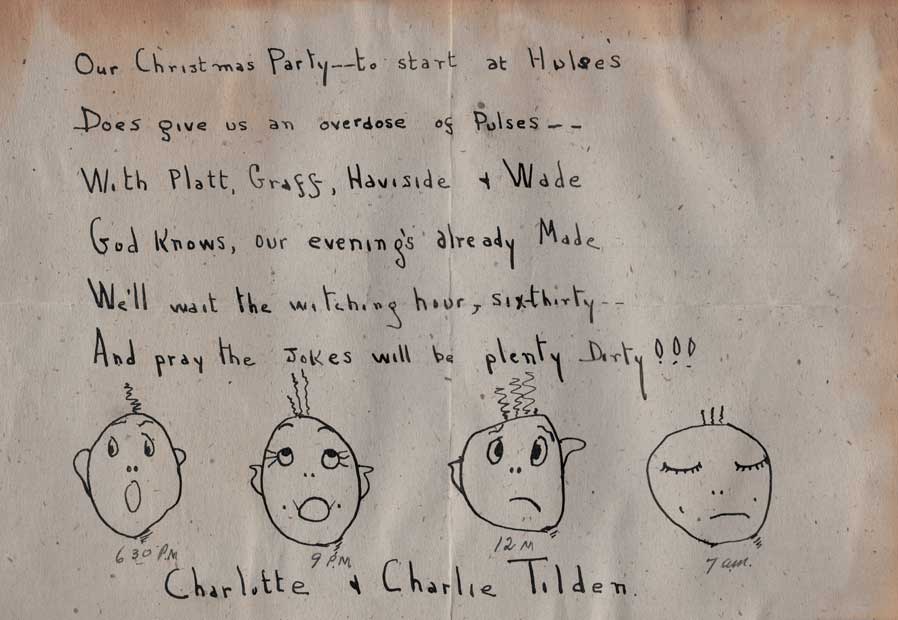 Our Christmas Party--to start at Hulse's
Does give us an overdose of Pulses--
With Platt, Graff, Haviside & Wade
God Knows, our evening's already Made
We'll wait the witching hour, six-thirty--
And pray the Jokes will be plenty Dirty!!!
6 30 P.M
9 P.M.
12 M
7 am.
Charlotte & Charlie Tilden.